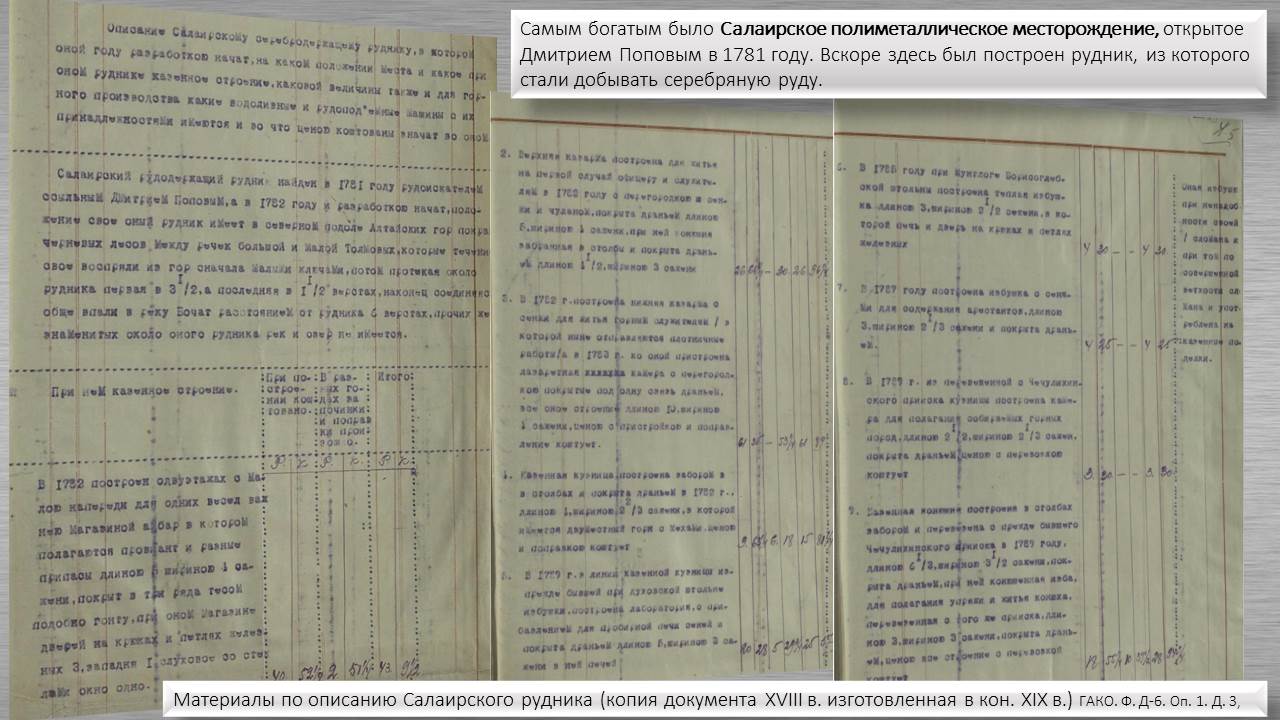 Самым богатым было Салаирское полиметаллическое месторождение, открытое
Дмитрием Поповым в 1781 году. Вскоре здесь был построен рудник, из которого
стали добывать серебряную руду.
Описание Салаирскому серебродержащему руднику, в котором
оной году разработкою начат, на каком положении места и какое при
оном руднике казенное строение, каковой величины также и для гор-
ного производства какие водоливные и рудопод"емные машины с их
принадлежностями имеются и во что ценою коштованы значат во оном
Салаирский рудодержащий рудник найден в 1781 году рудоискателем
ссыльным Дмитрием Поповым, а в 1782 году и разработкою начат, поло-
жение свое оный рудник имеет в северном подоле Алтайских гор покра
черневых лесов между речек большой и малой Толмовых, которые течени
свое восприяли из гор сначала малыми ключами, потом протекая около
рудника первая в 3 I/2, а последняя в I I/2 верстах, наконец соединясь
обще впали в реку Бочат расстоянием от рудника 6 верстах, прочих же
знаменитых около оного рудника рек и озер не имеется.
При нем казенное строение.
При по-
строе-
нии кош
товано.
В раз-
ных го-
дах за
починки
и поправ
ки про
изошло.
Итого:
Р. К. Р. К. Р. К.
В 1782 построен одноэтажах с ма-
лою напереди для одних весел ван
нею магазиной амбар в котором
полагаются провиант и разные
припасы длиною 6 шириною 4 са-
жени, покрыт в три ряда тесом
подобно гонту, при оном магазине
дверей на крюках и петлях желез-
ных 3, западня I, слуховое со сте-
лами окно одно.
2. Верхняя казарма построена для житья
на первой случай офицеру и служите-
лям в 1782 году с перегородкою и сен-
ми и чуланом, покрыта драньем длиною
6, шириною 4 сажени, при ней конюшня
забранная в столбы и покрыта драньем
длиною 4 I/2, шириною 3 сажени
3. В 1782 г. построена нижняя казарма с
сенми для житья горных служителей / в
которой ныне отправляются плотничные
работы/ а в 1783 г. ко оной пристроена
лазаретная камера с перегород-
кою покрытые под одну связь драньем,
все оное строение длиною 10, шириною
4 сажени, ценою с пристройкою и поправ-
ление коштует.
4. Казенная кузница построена забором в
столбах и покрыта драньем в 1782 г.,
длиною 4, шириною 2 2/3 сажени, в которой
имеется двухместный горн с мехами, ценою
и поправкою коштует
5. В 1789 г. в линии казенной кузницы из
прежде бывшей при луховской штольне
избушки, построена лаборатория, с при-
бавлением для пробирной печи сеней и
покрыта драньем длиною 6, шириною 3 са-
жени в ней печей
6. В 1786 году при Кунглоге Борисоглеб-
ской штольны построена теплая избуш-
ка длиною 3, шириною 2 I/2 сажени, в ко-
торой печь и дверь на крюках и петлях
железных
4 30 - - 4 30
Оная избуш
при ненадоб
ности своей
/ сломана и
при том по
совершенной
ветхости сло
мана и упот-
реблена на
казенное по-
делки.
7. В 1787 году построена избушка с сеня-
ми для содержания арестантов, длиною
3, шириною 2 I/3 сажени и покрыта драньем.
4 25 - - 4 25
8. В 1789 г. из перевезенной с Чечулихин-
ского прииска кузницы построена каме-
ра для полагания собираемых горных
пород, длиною 2 I/2, шириною 2 I/3 сажен,
покрыта драньем, ценою с перевозкою
коштует
3 30 - - 3 30
9. Казенная конюшня построена в столбах
забором и перевезена с прежде бывшего
Чечулихинского прииска в 1789 году,
длиною 6 I/3, шириною 3 I/2 сажени, пок-
рыта драньем, при ней конюшенная изба,
для полагания упряжи и житья конюха,
перевезенная с того же прииска, дли-
ною 3, шириною 3 сажени, покрыта драньем,
ценою все строение с перевозкой
коштует
Материалы по описанию Салаирского рудника (копия документа XVIII в. изготовленная в кон. XIX в.) ГАКО. Ф. Д-6. Оп. 1. Д. 3,